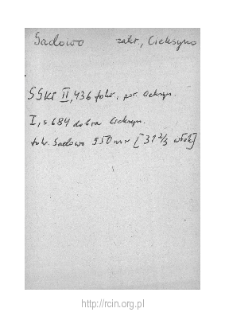 Sadowo zakr, Cieksyno
SGKP II, 436 folw, pr. Ciechan.
I, s 684 dobra Cieksyn.
folw. Sadowo 950 mr [31 2/3 włók]
http://rcin.org.pl